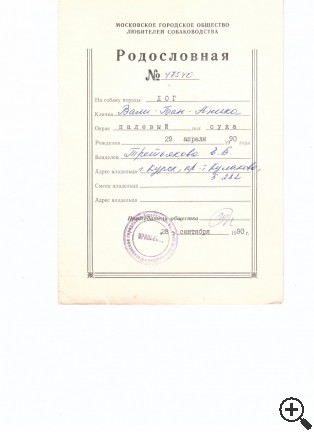 МОСКОВСКОЕ ГОРОДСКОЕ ОБЩЕСТВО
ЛЮБИТЕЛЕЙ СОБАКОВОДСТВА
Родословная
№ 47540
На собаку породы ДОГ
Кличка Вали-Бон-Аника
Окрас палевый пол сука
Рождения 29 апреля 1990 года
Владелец Третьякова
Адрес владельца г. Курск, пр-т Кулакова,
Смена владельца
Адрес владельца
Председатель общества
28 сентября 1990 г.